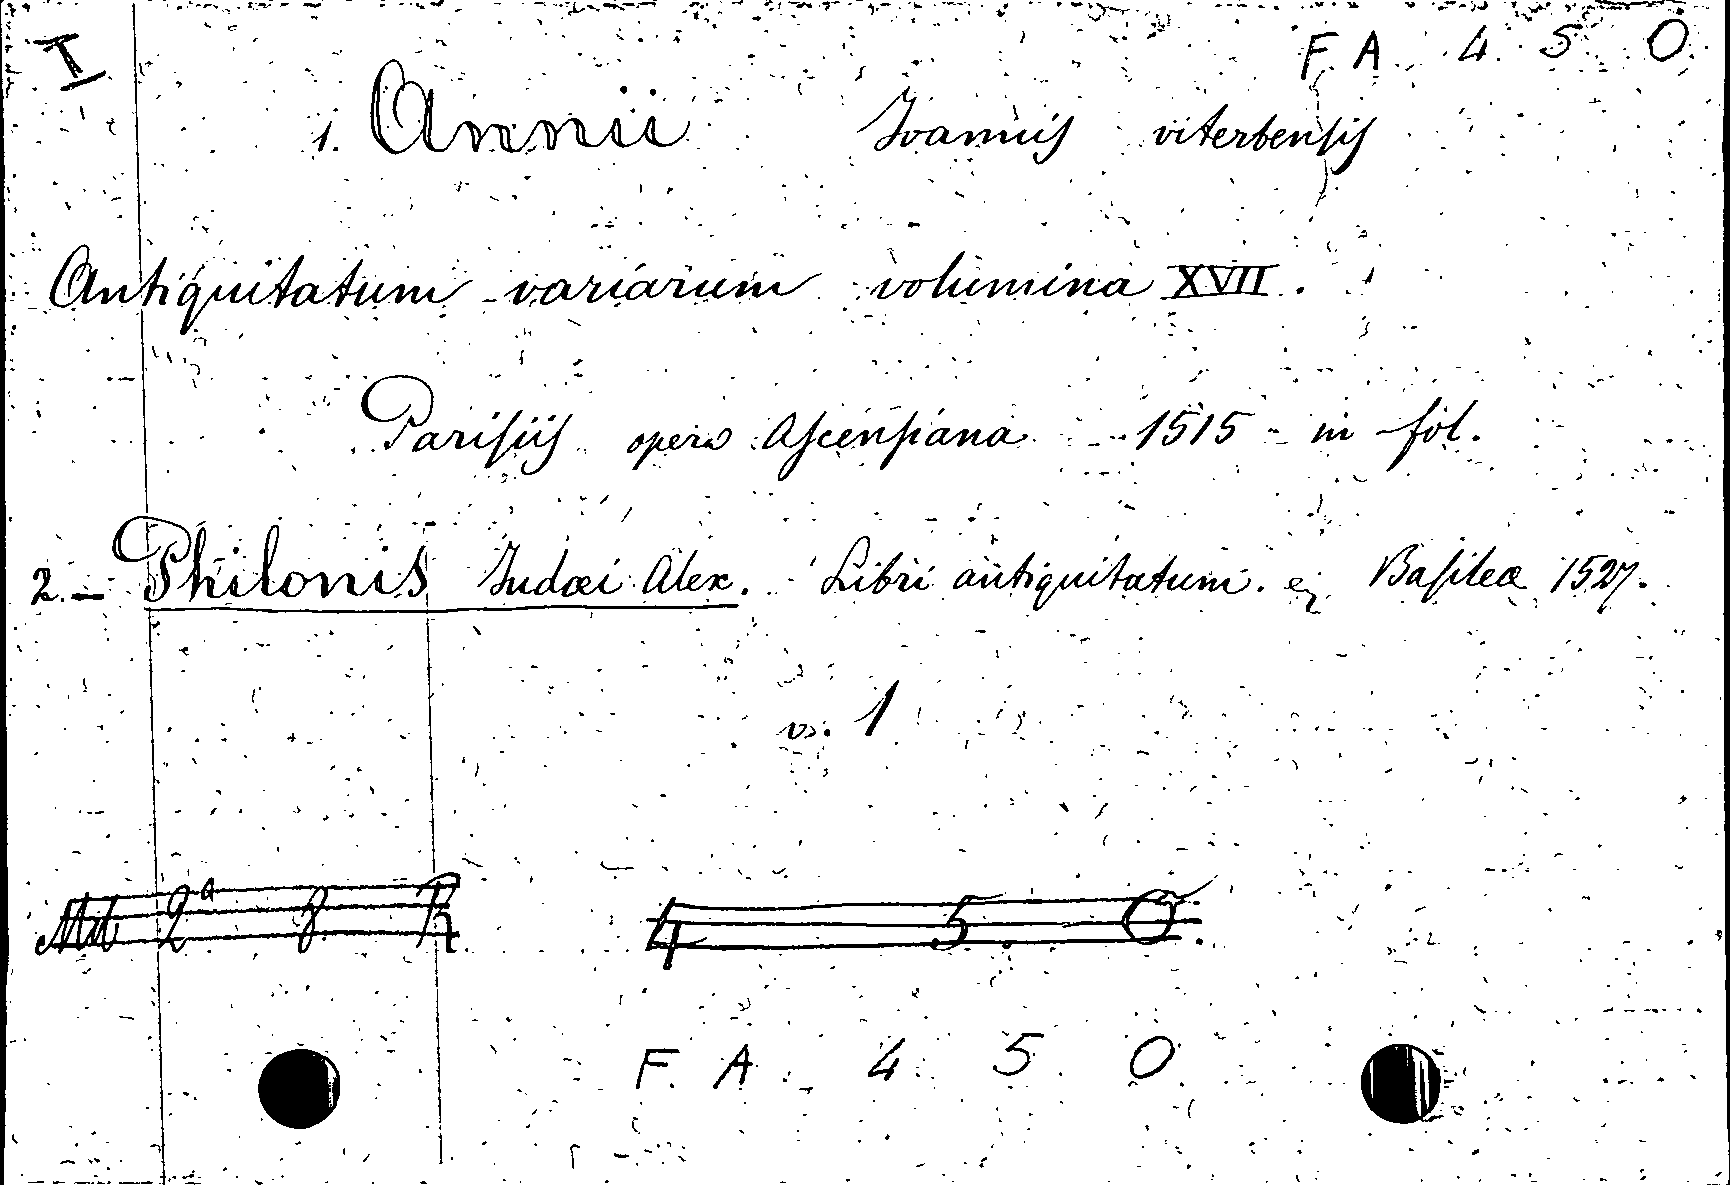 I
F. A. 4 5 0.
1. Annii Ioannis viterbensis
Antiquitatum variarum volumina XVII.
Parisiis opera Ascensiana 1515 - in fol.
2. - Philonis Judæi Alex. Libri antiquitatum. Basileæ 1527.
v. 1
2ª 8 R 4 5. 0.
F. A. 4 5 0